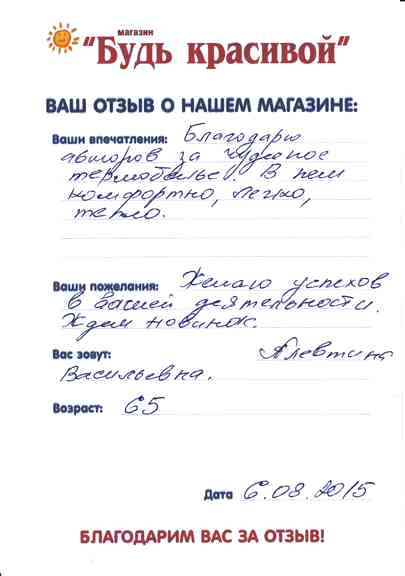 магазин
"Будь красивой"
ВАШ ОТЗЫВ О НАШЕМ МАГАЗИНЕ:
Ваши впечатления: Благодарю
авторов за чудесное
термобелье. В нем
комфортно, легко,
тепло.
Ваши пожелания: Желаю успехов
в вашей деятельности.
Ждем новинок.
Вас зовут: Алевтина
Васильевна.
Возраст: 65
Дата 6.08.2015
БЛАГОДАРИМ ВАС ЗА ОТЗЫВ!